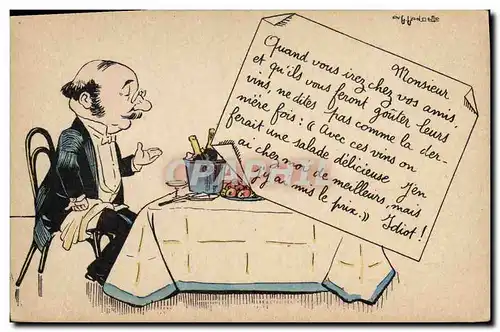 Monsieur
Quand vous irez chez vos amis,
et qu'ils vous feront goûter leurs
vins, ne dites pas comme la der-
nière fois : "Avec ces vins on
ferait une salade délicieuse J'en
ai chez moi de meilleurs, mais
j'y ai mis le prix." Idiot !
CPARAMA